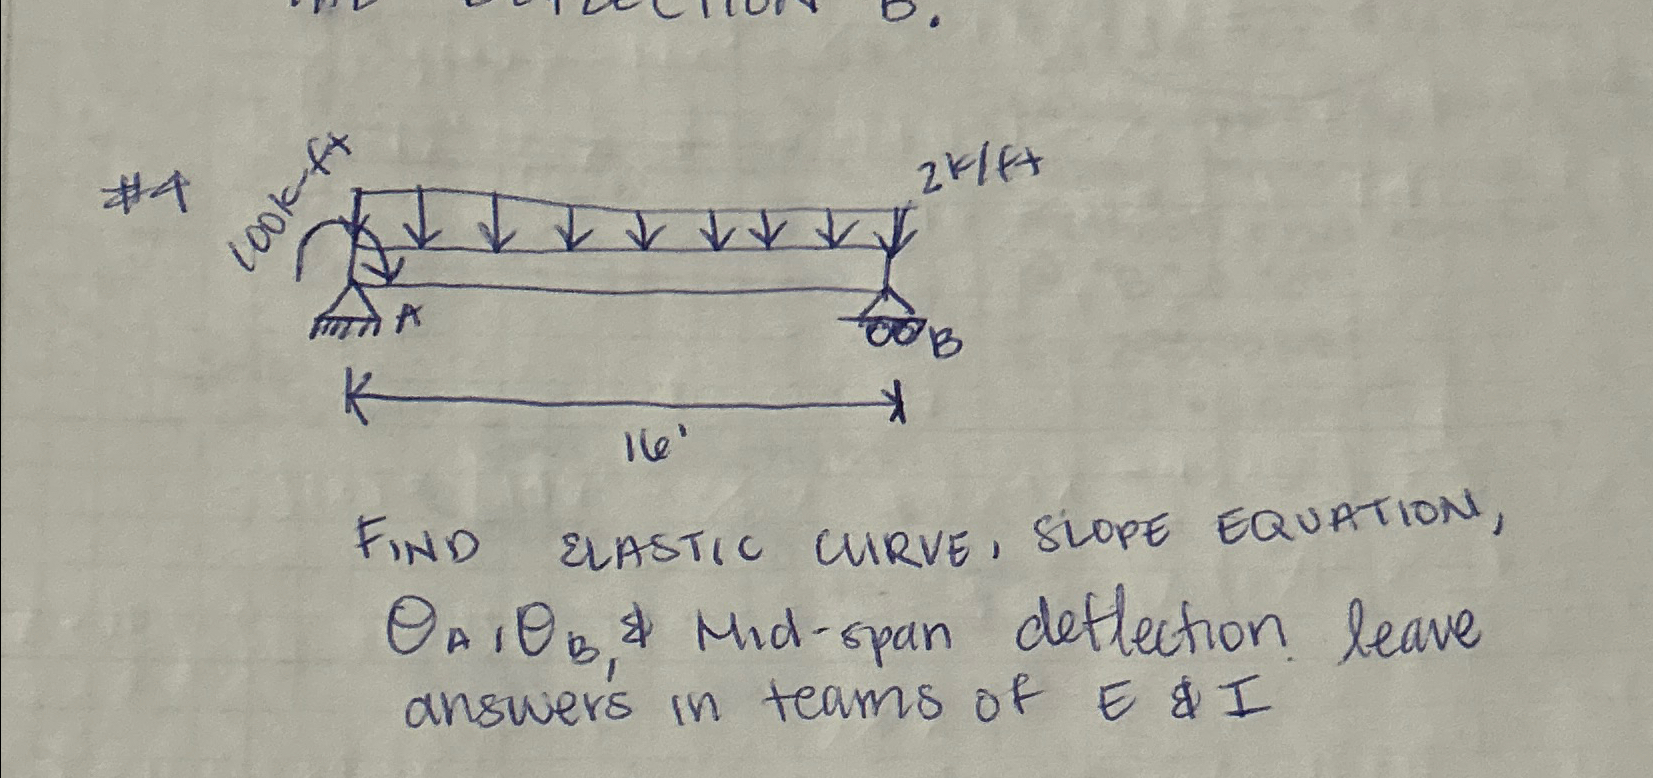 B.
#4
100k-ft
2k/ft
A
B
16'
FIND ELASTIC CURVE, SLOPE EQUATION,
θA, θB, & Mid-span deflection. leave
answers in teams of E & I